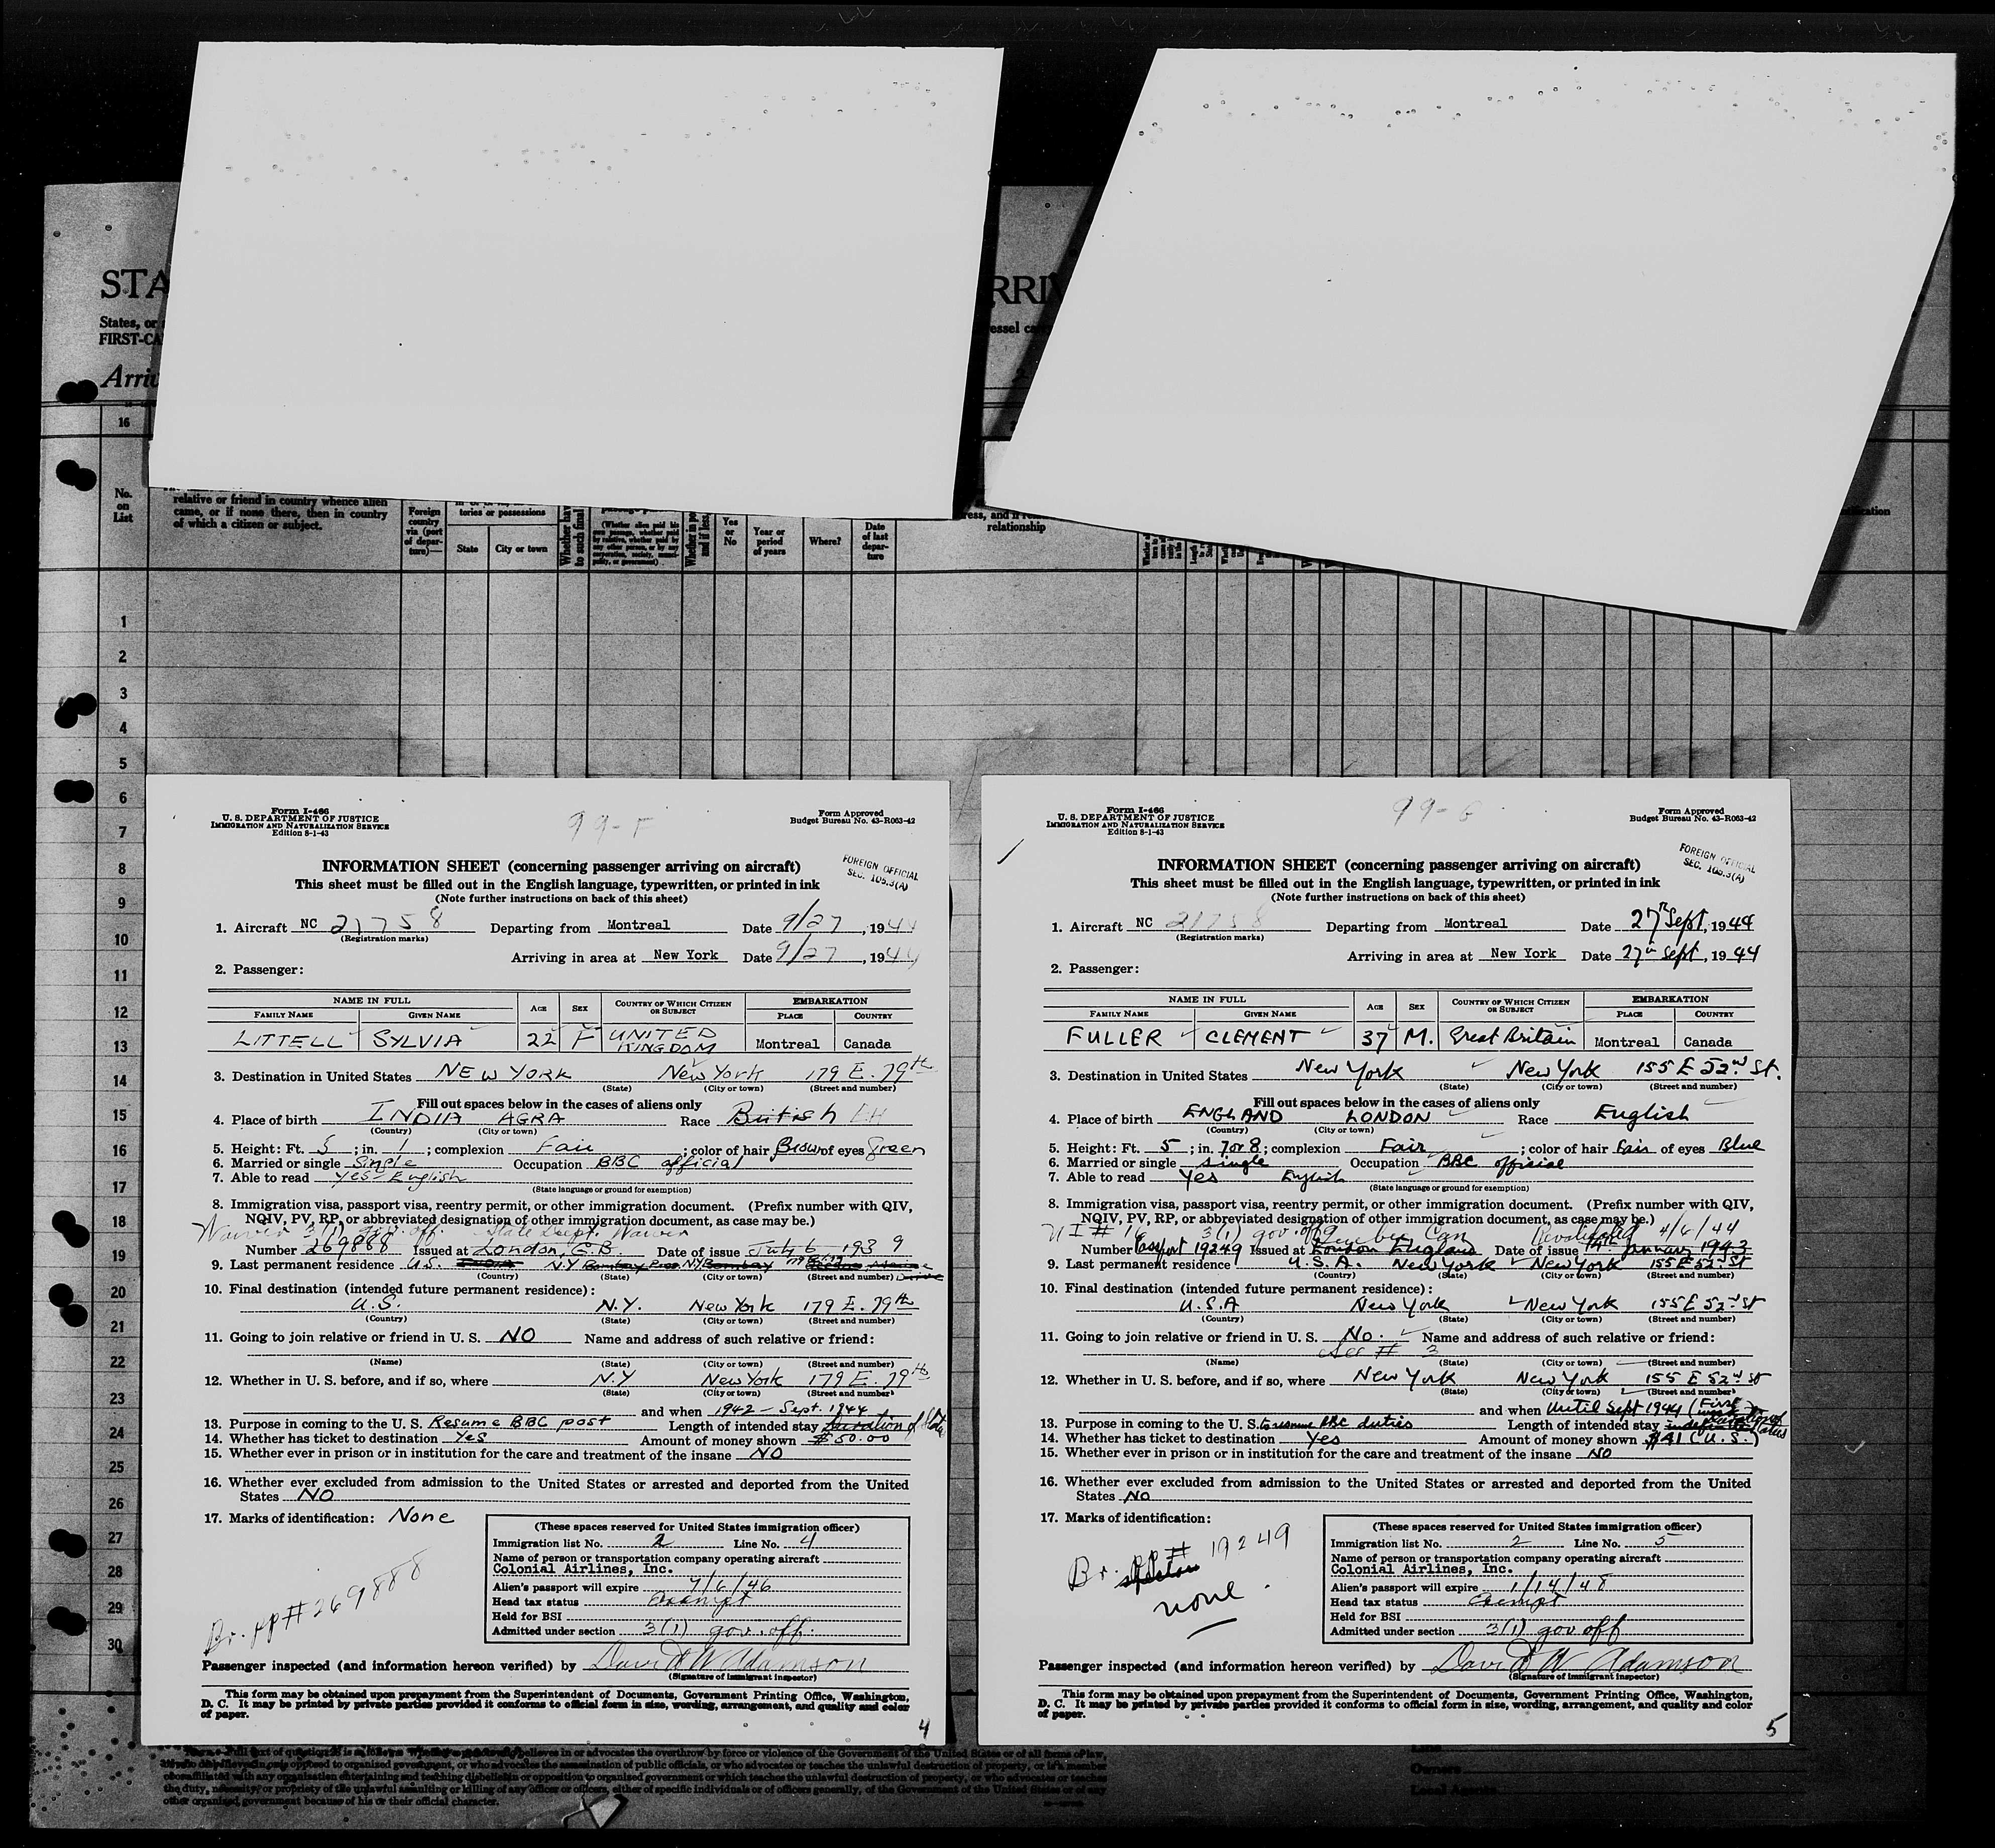 STA
RRIV
States, or
essel car
FIRST-CA
Arriv
16
No. on List
relative or friend in country whence alien
came, or if none there, then in country
of which a citizen or subject.
Foreign country via (port of departure)—
tories or possessions
State
City or town
Yes or No
Year or period of years
Where?
Date of last departure
relationship
1
2
3
4
5
6
7
8
9
10
11
12
13
14
15
16
17
18
19
20
21
22
23
24
25
26
27
28
29
30
Form I-466
U. S. DEPARTMENT OF JUSTICE
IMMIGRATION AND NATURALIZATION SERVICE
Edition 8-1-43
99-F
Form Approved
Budget Bureau No. 43-R063-42
FOREIGN OFFICIAL
SEC. 105.3(A)
INFORMATION SHEET (concerning passenger arriving on aircraft)
This sheet must be filled out in the English language, typewritten, or printed in ink
(Note further instructions on back of this sheet)
1. Aircraft NC 21758 Departing from Montreal Date 9/27, 1944
(Registration marks)
Arriving in area at New York Date 9/27, 1944
2. Passenger:
NAME IN FULL AGE SEX COUNTRY OF WHICH CITIZEN OR SUBJECT EMBARKATION
FAMILY NAME GIVEN NAME PLACE COUNTRY
LITTELL SYLVIA 22 F UNITED KINGDOM Montreal Canada
3. Destination in United States NEW YORK New York 179 E. 79th
(State) (City or town) (Street and number)
Fill out spaces below in the cases of aliens only
4. Place of birth INDIA AGRA Race British
(Country) (City or town)
5. Height: Ft. 5; in. 1; complexion Fair; color of hair Brow of eyes Green
6. Married or single Single Occupation BBC official
7. Able to read Yes - English
(State language or ground for exemption)
8. Immigration visa, passport visa, reentry permit, or other immigration document. (Prefix number with QIV,
NQIV, PV, RP, or abbreviated designation of other immigration document, as case may be.)
Waiver 3(1) gov. off. State Dept. Waiver
Number 269888 Issued at London, G.B. Date of issue July 6 1939
9. Last permanent residence U.S. N.Y. N.Y.
(Country) (State) (City or town) (Street and number)
10. Final destination (intended future permanent residence):
U.S. N.Y. New York 179 E. 79th
(Country) (State) (City or town) (Street and number)
11. Going to join relative or friend in U. S. NO Name and address of such relative or friend:
(Name) (State) (City or town) (Street and number)
12. Whether in U. S. before, and if so, where N.Y New York 179 E. 79th
(State) (City or town) (Street and number)
and when 1942 - Sept. 1944
13. Purpose in coming to the U. S. Resume BBC post Length of intended stay Duration of
14. Whether has ticket to destination Yes Amount of money shown $50.00
15. Whether ever in prison or in institution for the care and treatment of the insane NO
16. Whether ever excluded from admission to the United States or arrested and deported from the United
States NO
17. Marks of identification: None
Br. pp # 269888
(These spaces reserved for United States immigration officer)
Immigration list No. 2 Line No. 4
Name of person or transportation company operating aircraft
Colonial Airlines, Inc.
Alien's passport will expire 7/6/46
Head tax status Exempt
Held for BSI
Admitted under section 3(1) gov. off.
Passenger inspected (and information hereon verified) by David W Adamson
(Signature of immigrant inspector)
This form may be obtained upon prepayment from the Superintendent of Documents, Government Printing Office, Washington,
D. C. It may be printed by private parties provided it conforms to official form in size, wording, arrangement, and quality and color
of paper.
4
Form I-466
U. S. DEPARTMENT OF JUSTICE
IMMIGRATION AND NATURALIZATION SERVICE
Edition 8-1-43
99-G
Form Approved
Budget Bureau No. 43-R063-42
FOREIGN OFFICIAL
SEC. 105.3(A)
INFORMATION SHEET (concerning passenger arriving on aircraft)
This sheet must be filled out in the English language, typewritten, or printed in ink
(Note further instructions on back of this sheet)
1. Aircraft NC 21758 Departing from Montreal Date 27th Sept, 1944
(Registration marks)
Arriving in area at New York Date 27th Sept, 1944
2. Passenger:
NAME IN FULL AGE SEX COUNTRY OF WHICH CITIZEN OR SUBJECT EMBARKATION
FAMILY NAME GIVEN NAME PLACE COUNTRY
FULLER CLEMENT 37 M. Great Britain Montreal Canada
3. Destination in United States New York New York 155 E 52nd St.
(State) (City or town) (Street and number)
Fill out spaces below in the cases of aliens only
4. Place of birth ENGLAND LONDON Race English
(Country) (City or town)
5. Height: Ft. 5; in. 7 or 8; complexion Fair; color of hair Fair of eyes Blue
6. Married or single single Occupation BBC official
7. Able to read Yes English
(State language or ground for exemption)
8. Immigration visa, passport visa, reentry permit, or other immigration document. (Prefix number with QIV,
NQIV, PV, RP, or abbreviated designation of other immigration document, as case may be.)
3(1) gov. off Can 4/6/44
Number Passport 19249 Issued at London England Date of issue 14th January 1943
9. Last permanent residence U.S.A. New York New York 155 E 52nd St
(Country) (State) (City or town) (Street and number)
10. Final destination (intended future permanent residence):
U.S.A New York New York 155 E 52nd St
(Country) (State) (City or town) (Street and number)
11. Going to join relative or friend in U. S. No. Name and address of such relative or friend:
See # 3
(Name) (State) (City or town) (Street and number)
12. Whether in U. S. before, and if so, where New York New York 155 E 52nd St
(State) (City or town) (Street and number)
and when Until Sept 1944 (First
13. Purpose in coming to the U. S. to resume BBC duties Length of intended stay
14. Whether has ticket to destination Yes Amount of money shown $41 (U.S.)
15. Whether ever in prison or in institution for the care and treatment of the insane NO
16. Whether ever excluded from admission to the United States or arrested and deported from the United
States NO
17. Marks of identification:
Br. pp # 19249
none
(These spaces reserved for United States immigration officer)
Immigration list No. 2 Line No. 5
Name of person or transportation company operating aircraft
Colonial Airlines, Inc.
Alien's passport will expire 1/14/48
Head tax status Exempt
Held for BSI
Admitted under section 3(1) gov off
Passenger inspected (and information hereon verified) by David W Adamson
(Signature of immigrant inspector)
This form may be obtained upon prepayment from the Superintendent of Documents, Government Printing Office, Washington,
D. C. It may be printed by private parties provided it conforms to official form in size, wording, arrangement, and quality and color
of paper.
5
believes in or advocates the overthrow by force or violence of the Government of the United States or of all forms of law,
opposed to organized government, or who advocates the assassination of public officials, or who advocates or teaches the unlawful destruction of property, or is a member
affiliated with any organization entertaining and teaching disbelief in or opposition to organized government or which teaches the unlawful destruction of property, or who advocates or teaches
the duty, necessity, or propriety of the unlawful assaulting or killing of any officer or officers, either of specific individuals or of officers generally, of the Government of the United States or of any
other organized government because of his or their official character.
Owners
Local Agents